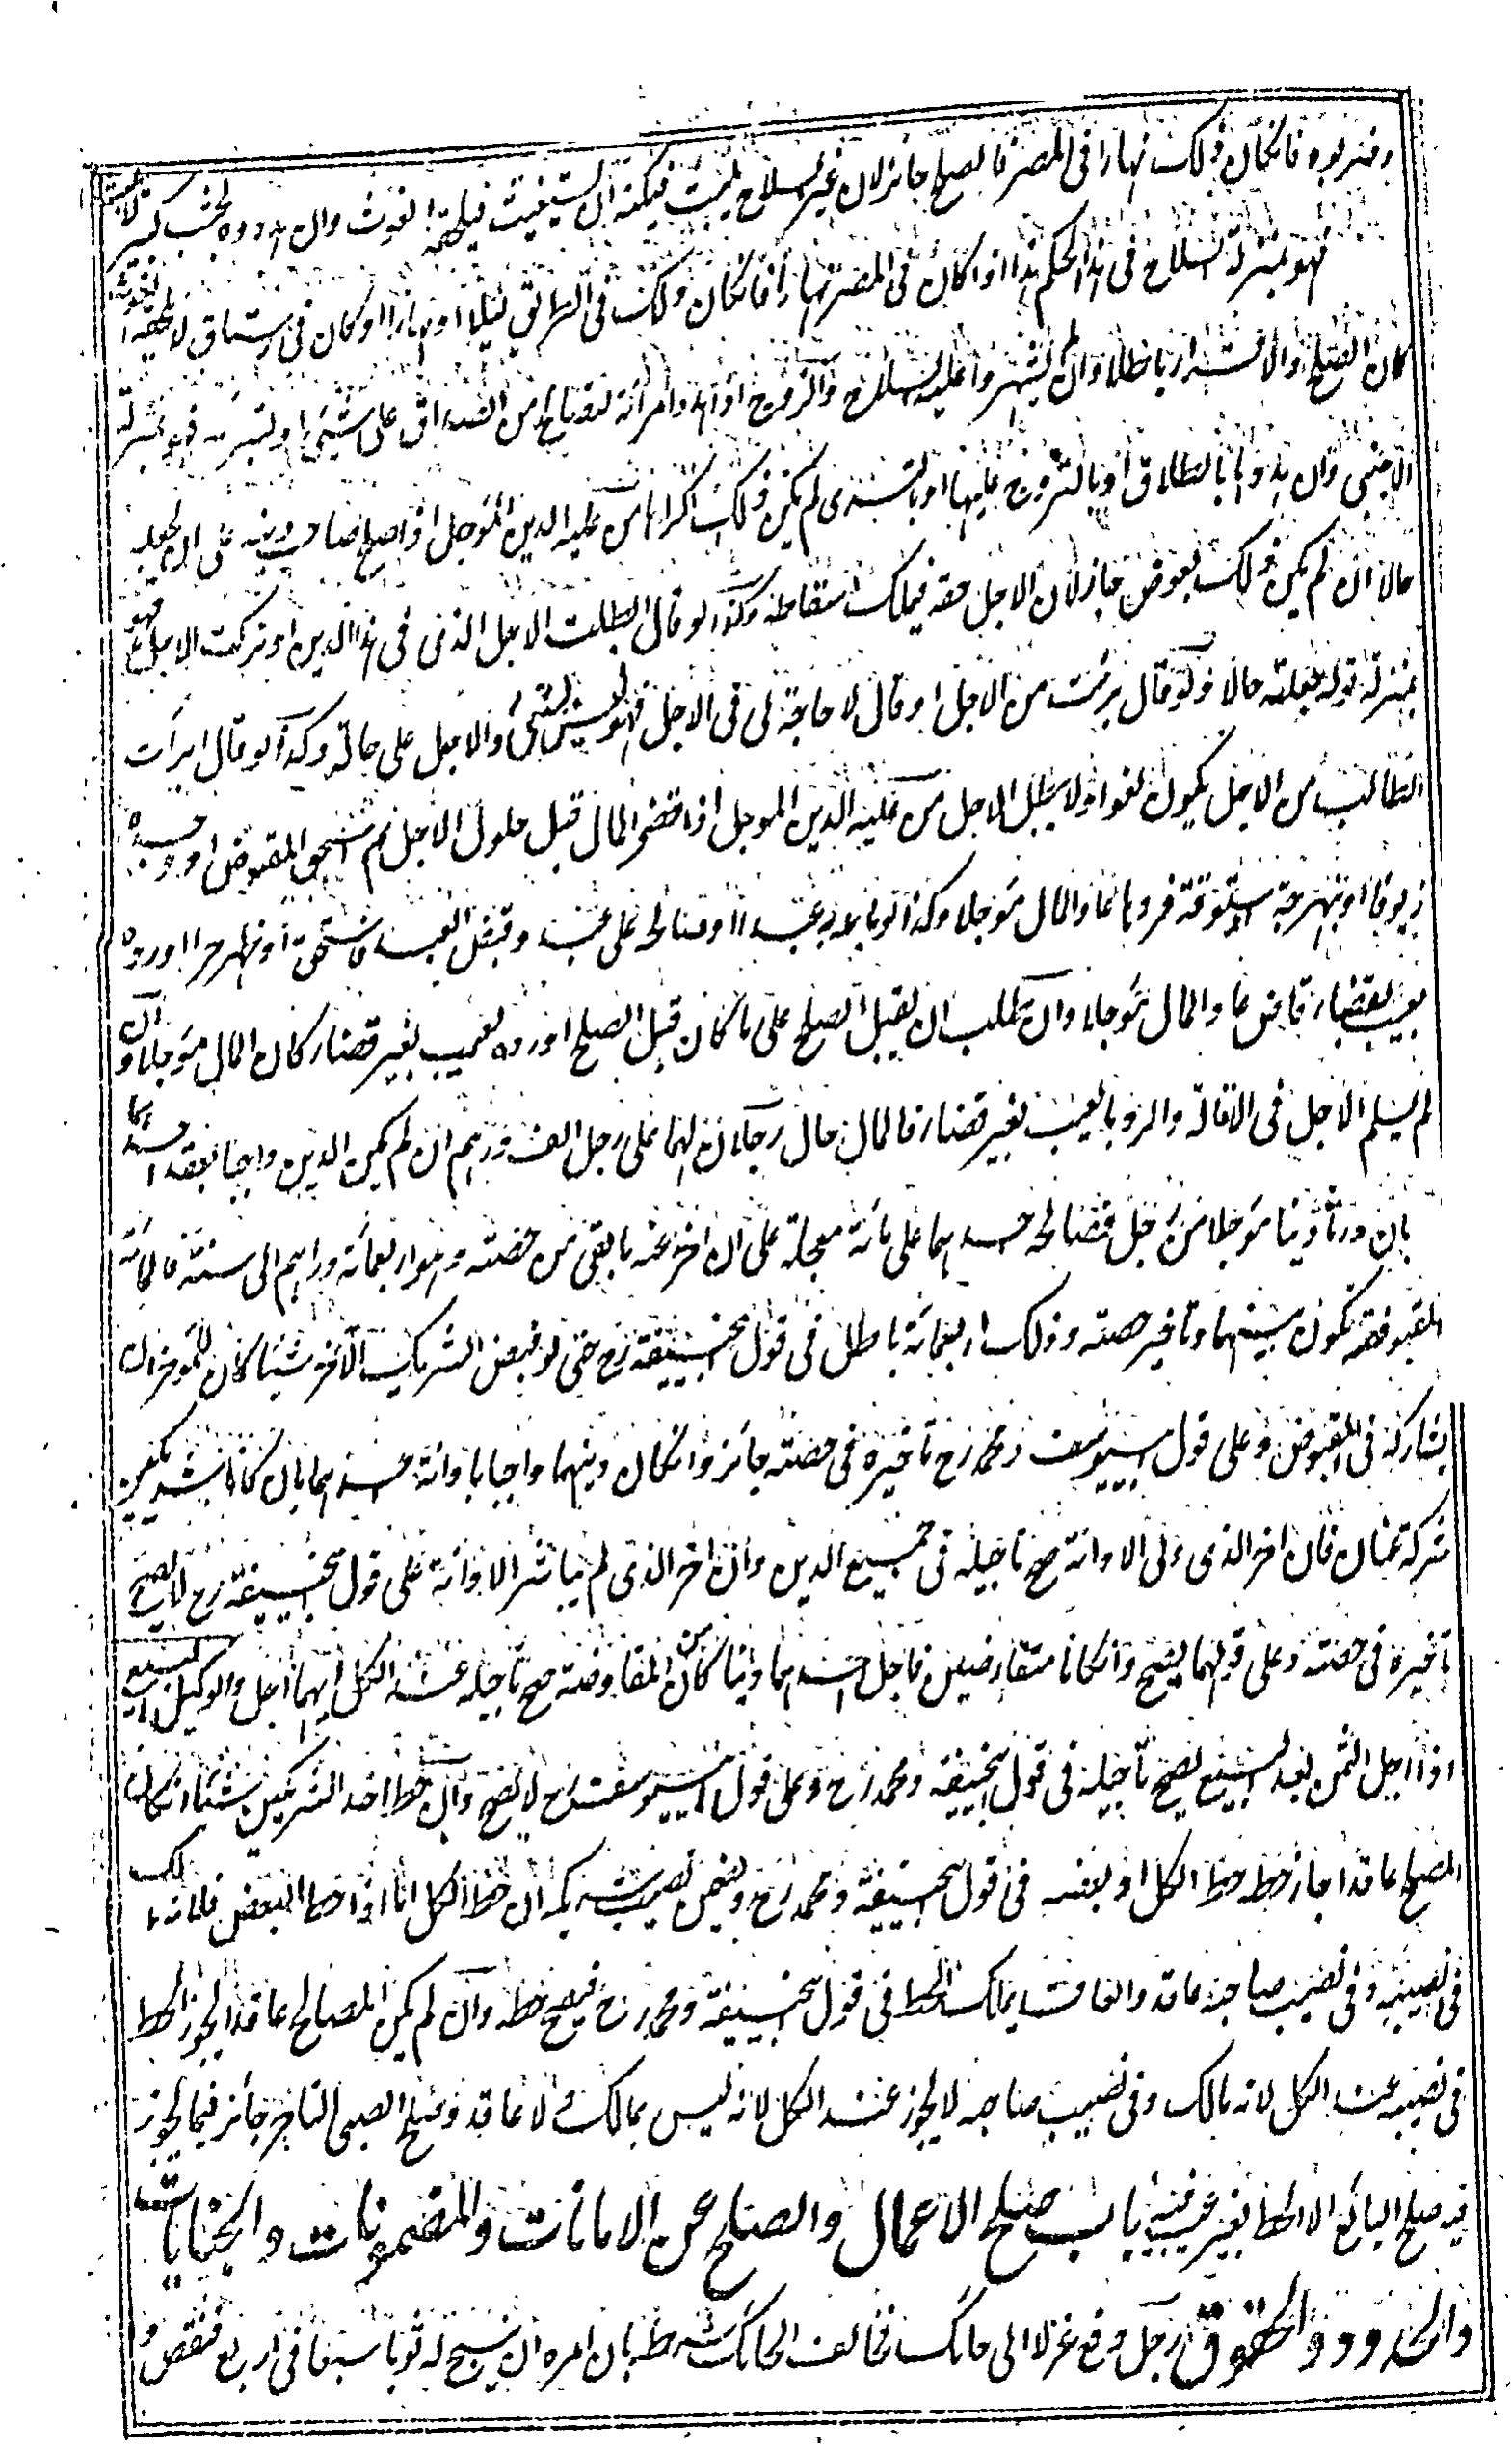 وضربوه فانكان ذلك نهارا فى المصر فالصلح جائز لان غير السلاح يلبث فيمكنه ان يستغيث فيلحقه الغوث وان هددوه بخشب كبير لا يلبث
فهو بمنزلة السلاح فى هذا الحكم هذا اذا كان فى المصر نهارا فانكان ذلك فى الطريق ليلا او نهارا او كان فى رستاق لا يلحقه الغوث
كان الصلح والاقرار باطلا وان لم يشهروا عليه السلاح والزوج اذا هدد امرأته لتصالح من الصداق على شيئ او تبرئه فهو بمنزلة
الاجنبى وان هددها بالطلاق او بالتزوج عليها او بالتسرى لم يكن ذلك اكراها من عليه الدين المؤجل اذا صالح صاحب دينه على ان يجعله
حالا ان لم يكن ذلك بعوض جاز لان الاجل حقه فيملك اسقاطه وكذا لو قال ابطلت الاجل الذى فى هذا الدين او تركت الاجل فهو
بمنزلة قوله جعلته حالا ولو قال برئت من الاجل او قال لا حاجة لى فى الاجل فهو ليس بشيئ والاجل على حاله وكذا لو قال ابرأت
الطالب من الاجل يكون لغوا ولا يبطل الاجل من عليه الدين المؤجل اذا قضى المال قبل حلول الاجل ثم استحق المقبوض او وجده
زيوفا او نبهرجة او ستوقة فردها عاد المال مؤجلا وكذا لو باعه به عبدا او صالحه على عبد وقبض العبد فاستحق او ظهر حرا او رده
بعيب بقضاء قاض عاد المال مؤجلا وان طلب ان يقيل الصلح على ما كان قبل الصلح او رده بعيب بغير قضاء كان المال مؤجلا وان
لم يسلم الاجل فى الاقالة والرد بالعيب بغير قضاء فالمال حال رجلان لهما على رجل الف درهم ان لم يكن الدين واجبا بعقد احدهما
بان ورثا دينا مؤجلا من رجل فصالحه احدهما على مائة معجلة على ان اخر عنه ما بقى من حصته وهو اربعمائة دراهم الى سنة فالمائة
المقبوضة تكون بينهما وتأخير حصته وذلك اربعمائة باطل فى قول ابيحنيفة رح حتى لو قبض الشريك الآخر شيئا كان للمؤخر ان
يشاركه فى المقبوض وعلى قول ابييوسف ومحمد رح تأخيره فى حصته جائز وانكان دينهما واجبا بادانة احدهما بان كانا شريكين
شركة عنان فان اخر الذى ولى الادانة صح تاجيله فى جميع الدين وان اخر الذى لم يباشر الادانة على قول ابيحنيفة رح لا يصح
تاخيره فى حصته وعلى قولهما يصح وانكانا متفاوضين فاجل احدهما دينا كان من المفاوضة صح تاجيله عند الكل ايهما اجل والوكيل بالبيع
اذا اجل الثمن بعد البيع يصح تأجيله فى قول ابيحنيفة ومحمد رح وعلى قول ابييوسف رح لا يصح وان حط احد الشريكين شيئا انكان
المصالح عاقدا جاز حطه حط الكل او بعضه فى قول ابيحنيفة ومحمد رح ويضمن نصيب شريكه ان حط الكل اما اذا حط البعض فلانه مالك
فى نصيبه وفى نصيب صاحبه عاقد والعاقد يملك الحط فى قول ابيحنيفة ومحمد رح فيصح حطه وان لم يكن المصالح عاقدا يجوز الحط
فى نصيبه عند الكل لانه مالك وفى نصيب صاحبه لا يجوز عند الكل لانه ليس بمالك ولا عاقد وصلح الصبى التاجر جائز فيما يجوز
فيه صلح البائع الا الحط بغير عيب باب صلح الاعمال والصلح عن الامانات والمضمونات والجنايات
والحدود والحقوق رجل دفع غزلا الى حائك فخالف الحائك شرطه بان امره ان ينسج له ثوبا سبعا فى اربع فنقص او